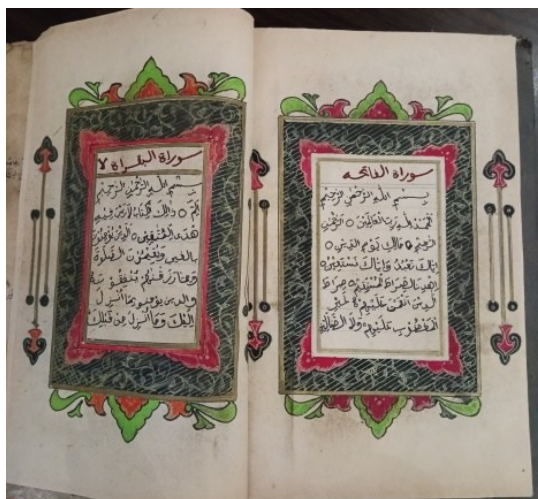 سوراة الفاتحه
بسم الله الرحمن الرحيم
الحمد لله رب العالمين ٥ الرحمن
الرحيم ٥ مالك يوم الدين ٥
إياك نعبد وإياك نستعين ٥
إهدنا الصراط المستقيم ٥ صراط
لذين أنعمت عليهم ٥ غير
المغضوب عليهم ولا الضالين
سوراة البقراة
بسم الله الرحمن الرحيم
الم ٥ ذالك الكتاب لاريب فيه
هدى للمتقين ٥ الذين يؤمنون
بالغيب ويقيمون الصلوة
ومما رزقنهم ينفقون
والذين يؤمنو بما أنزل
إليك وما أنزل من قبلك